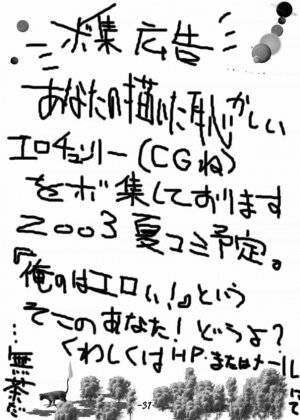 ボ集広告
あなたの描いた恥かしい
エロチュリー(CGね)
をボ集しております
2003夏コミ予定。
『俺のはエロい!』という
そこのあなた!どうよ?
くわしくはHPまたはメールにて
…無茶だ
-31-